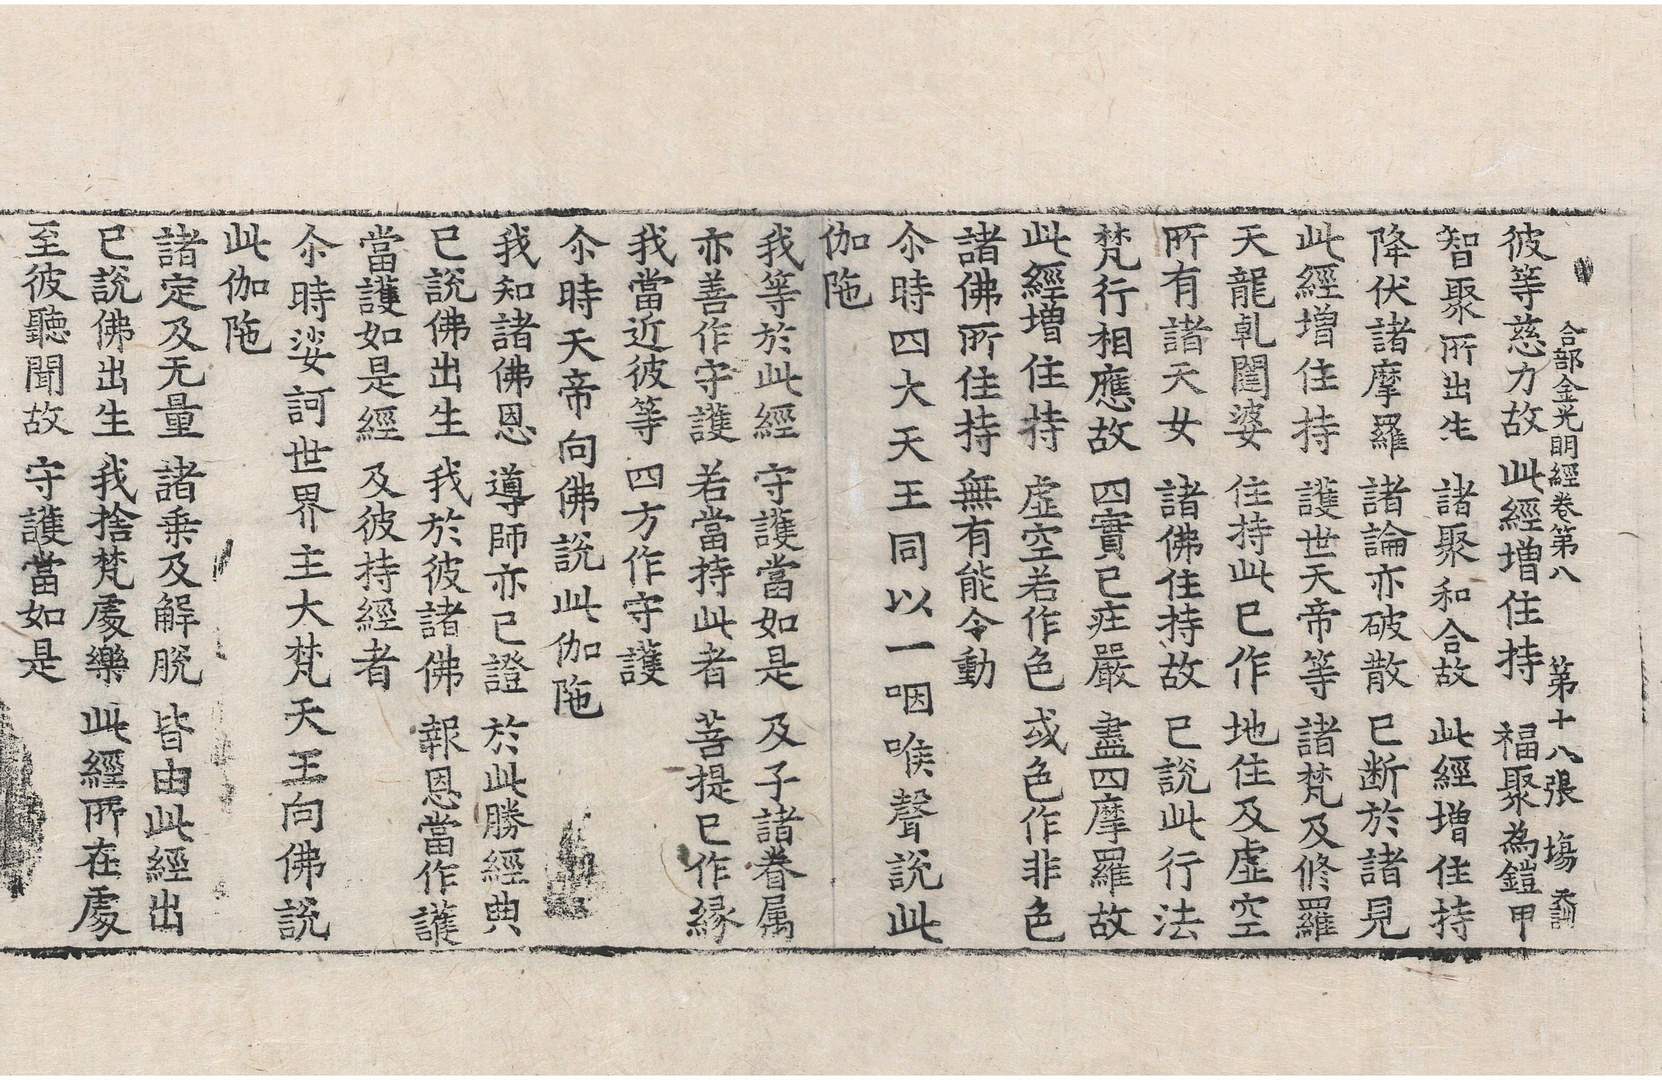 合部金光明經卷第八 第十八張 塲
彼等慈力故 此經增住持 福聚為鎧甲
智聚所出生 諸聚和合故 此經增住持
降伏諸摩羅 諸論亦破散 已断於諸見
此經增住持 護世天帝等 諸梵及修羅
天龍乹闥婆 住持此已作 地住及虛空
所有諸天女 諸佛住持故 已說此行法
梵行相應故 四實已庄嚴 盡四摩羅故
此經增住持 虛空若作色 或色作非色
諸佛所住持 無有能令動
尒時四大天王同以一咽喉聲說此
伽陁
我等於此經 守護當如是 及子諸眷属
亦善作守護 若當持此者 菩提已作緣
我當近彼等 四方作守護
尒時天帝向佛說此伽陁
我知諸佛恩 導師亦已證 於此勝經典
已說佛出生 我於彼諸佛 報恩當作護
當護如是經 及彼持經者
尒時娑訶世界主大梵天王向佛說
此伽陁
諸定及无量 諸乘及解脫 皆由此經出
已說佛出生 我捨梵處樂 此經所在處
至彼聽聞故 守護當如是